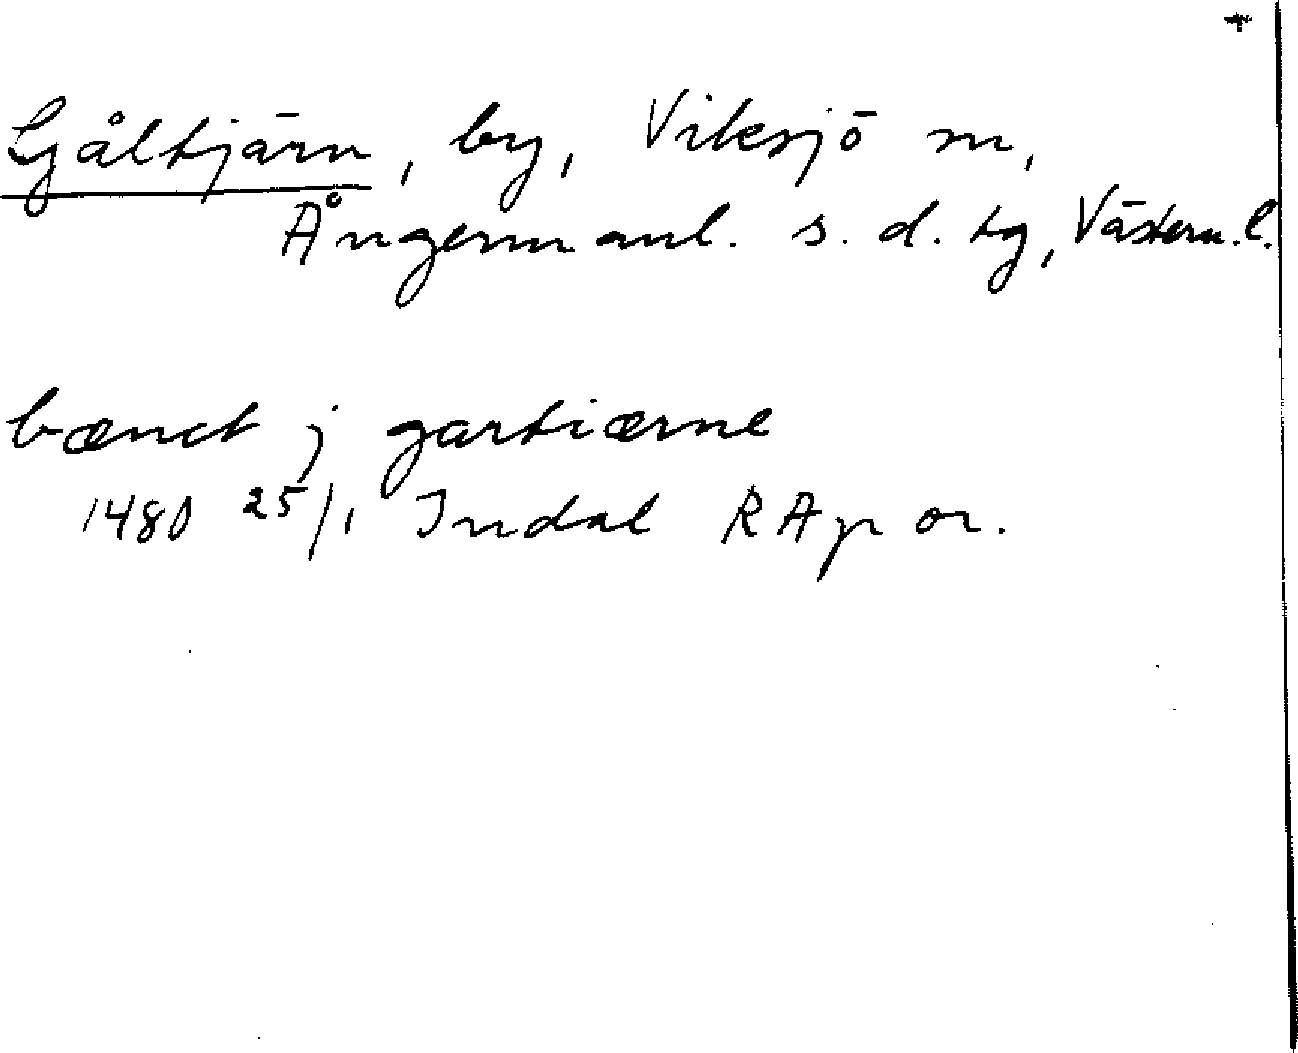 +
Gåltjärn, by, Viksjö sn,
Ångermanl. s. d. tg, Västern. l.
bænct j gartiærne
1480 25/1 Indal RAp or.